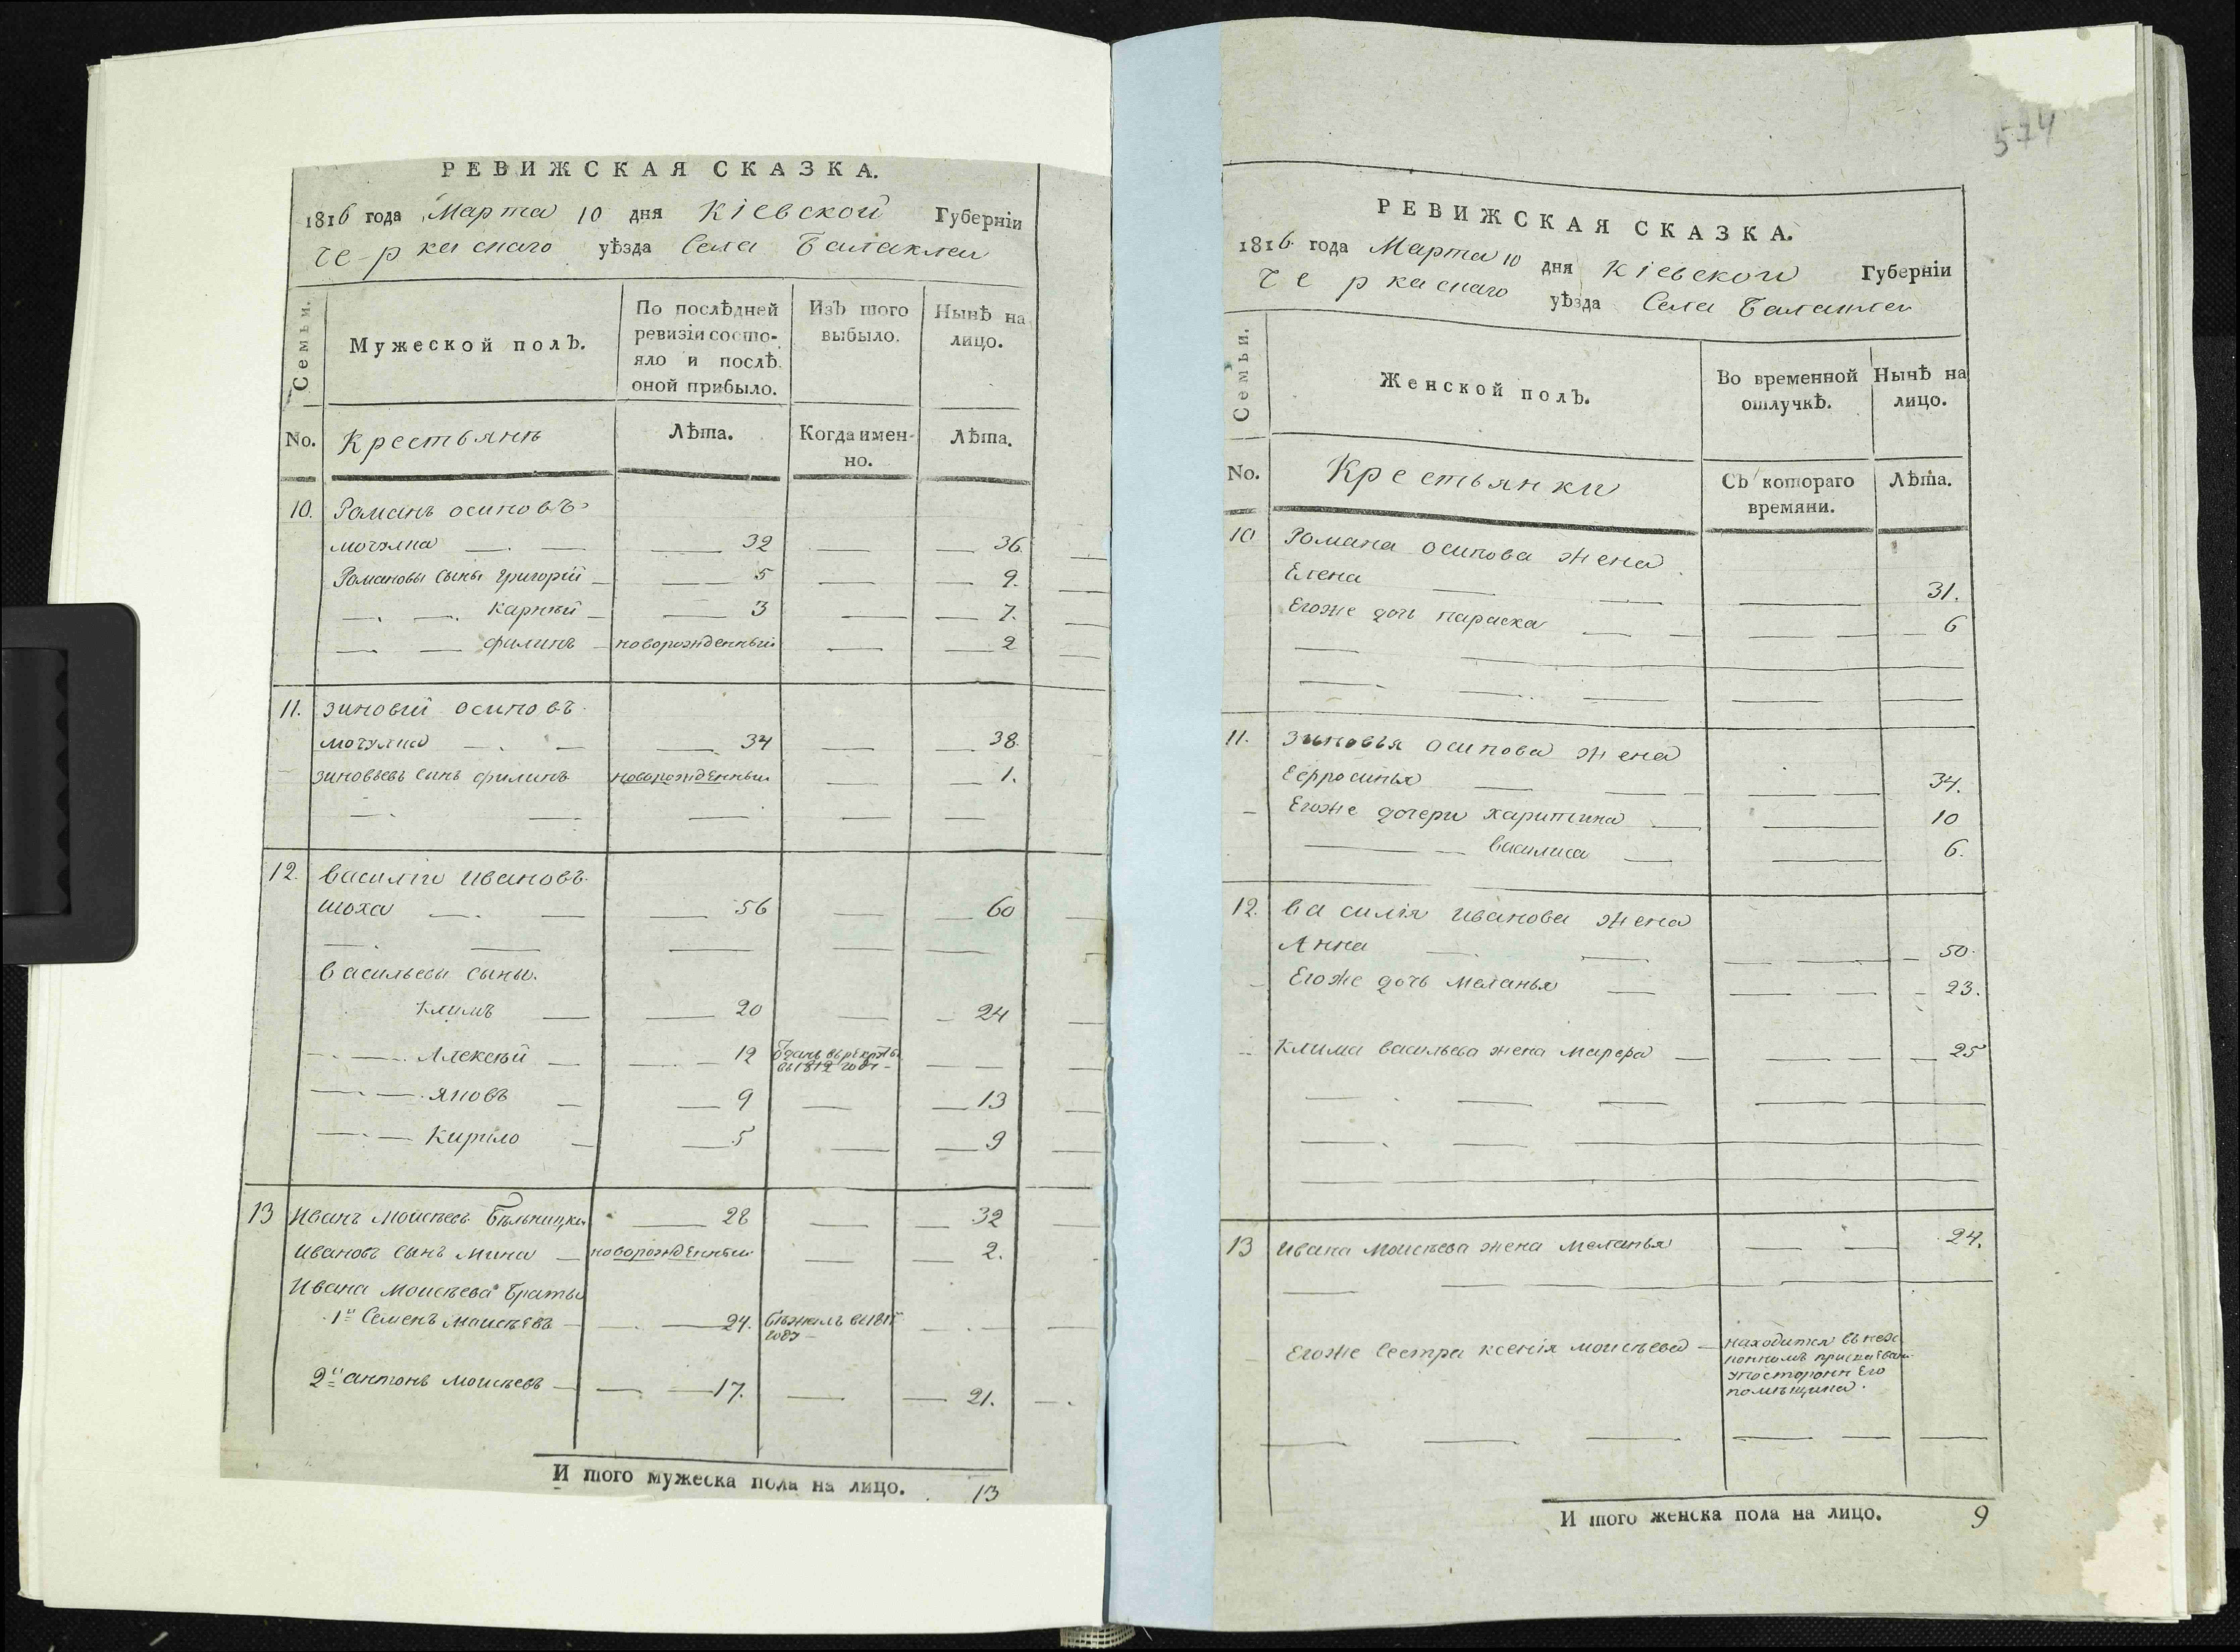 РЕВИЖСКАЯ СКАЗКА.
1816 года Марта 10 дня Кіевской Губерніи
Черкаскаго уѣзда Села Балаклеи
Семьи.
Мужеской полЪ.
По послѣдней ревизіи состояло и послѣ оной прибыло.
ИзЪ того выбыло.
Нынѣ на лицо.
No. Крестьянѣ
Лѣта.
Когда именно.
Лѣта.
10. Романъ осиповъ
мочулка 32 36.
Романовы сыны григорій 5 9.
карпѣй 3 7.
филипъ новорожденный 2
11. зиновій осиповъ
мочулка 34 38.
зиновьевъ сынъ филипъ новорожденный 1.
12. василій ивановъ
шоха 56 60
васильевы сыны.
климъ 20 24
Алексѣй 12 въ 1812 годѣ
яковъ 9 13
Кирило 5 9
13 Иванъ моисѣевъ 28 32
ивановъ сынъ мина новорожденный 2.
Ивана моисѣева братья
1й Семенъ моисѣевъ 24. бѣжалъ году
2й антонъ моисѣевъ 17. 21.
И того мужеска пола на лицо. 13
574
РЕВИЖСКАЯ СКАЗКА.
1816 года Марта 10 дня Кіевской Губерніи
Черкаскаго уѣзда Села Балаклеи
Семьи.
Женской полЪ.
Во временной отлучкѣ.
Нынѣ на лицо.
No. Крестьянки
СЪ котораго времяни.
Лѣта.
10 Романа осипова жена
Елена 31.
Егоже дочь параска 6
11. зиновья осипова жена
Ефросинья 34.
Егоже дочери харитина 10
василиса 6.
12. василія иванова жена
Анна 50.
Егоже дочь меланья 23.
клима васильева жена марфа 25
13 ивана моисѣева жена меланья 24.
Егоже сестра ксенія моисѣева находится въ
Его
помѣщика.
И того женска пола на лицо. 9